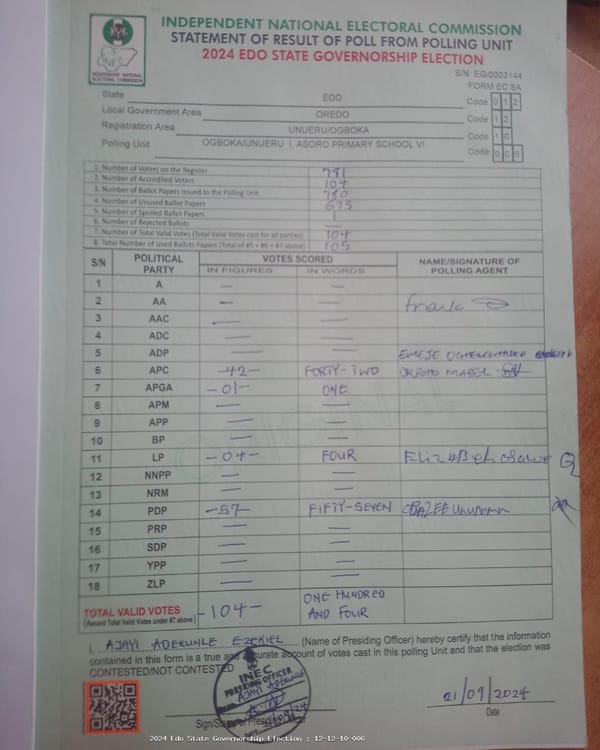 INDEPENDENT NATIONAL ELECTORAL COMMISSION
STATEMENT OF RESULT OF POLL FROM POLLING UNIT
2024 EDO STATE GOVERNORSHIP ELECTION
INEC
INDEPENDENT NATIONAL ELECTORAL COMMISSION
S/N: EG/0003144
FORM EC 8A
State EDO Code 0 1 2
Local Government Area OREDO Code 1 2
Registration Area UNUERU/OGBOKA Code 1 0
Polling Unit OGBOKA/UNUERU I, ASORO PRIMARY SCHOOL VI Code 0 0 6
1. Number of Voters on the Register 781
2. Number of Accredited Voters 104
3. Number of Ballot Papers Issued to the Polling Unit 780
4. Number of Unused Ballot Papers 675
5. Number of Spoiled Ballot Papers 1
6. Number of Rejected Ballots —
7. Number of Total Valid Votes (Total Valid Votes cast for all parties) 104
8. Total Number of Used Ballots Papers (Total of #5 + #6 + #7 above) 105
S/N POLITICAL PARTY VOTES SCORED NAME/SIGNATURE OF POLLING AGENT
IN FIGURES IN WORDS
1 A — —
2 AA — — Frank
3 AAC — —
4 ADC — —
5 ADP — — EMEJE
6 APC -42- FORTY-TWO MABEL
7 APGA -01- ONE
8 APM — —
9 APP — —
10 BP — —
11 LP -04- FOUR Elizabeth
12 NNPP — —
13 NRM — —
14 PDP -57- FIFTY-SEVEN
15 PRP — —
16 SDP — —
17 YPP — —
18 ZLP — —
ORIGINAL
TOTAL VALID VOTES -104- ONE HUNDRED AND FOUR
(Record Total Valid Votes under #7 above)
I, AJAYI ADEKUNLE EZEKIEL (Name of Presiding Officer) hereby certify that the information
contained in this form is a true and accurate account of votes cast in this polling Unit and that the election was
CONTESTED/NOT CONTESTED
INEC
PRESIDING OFFICER
AJAYI ADEKUNLE
21/09/2024
Date
2024 Edo State Governorship Election : 12-12-10-006